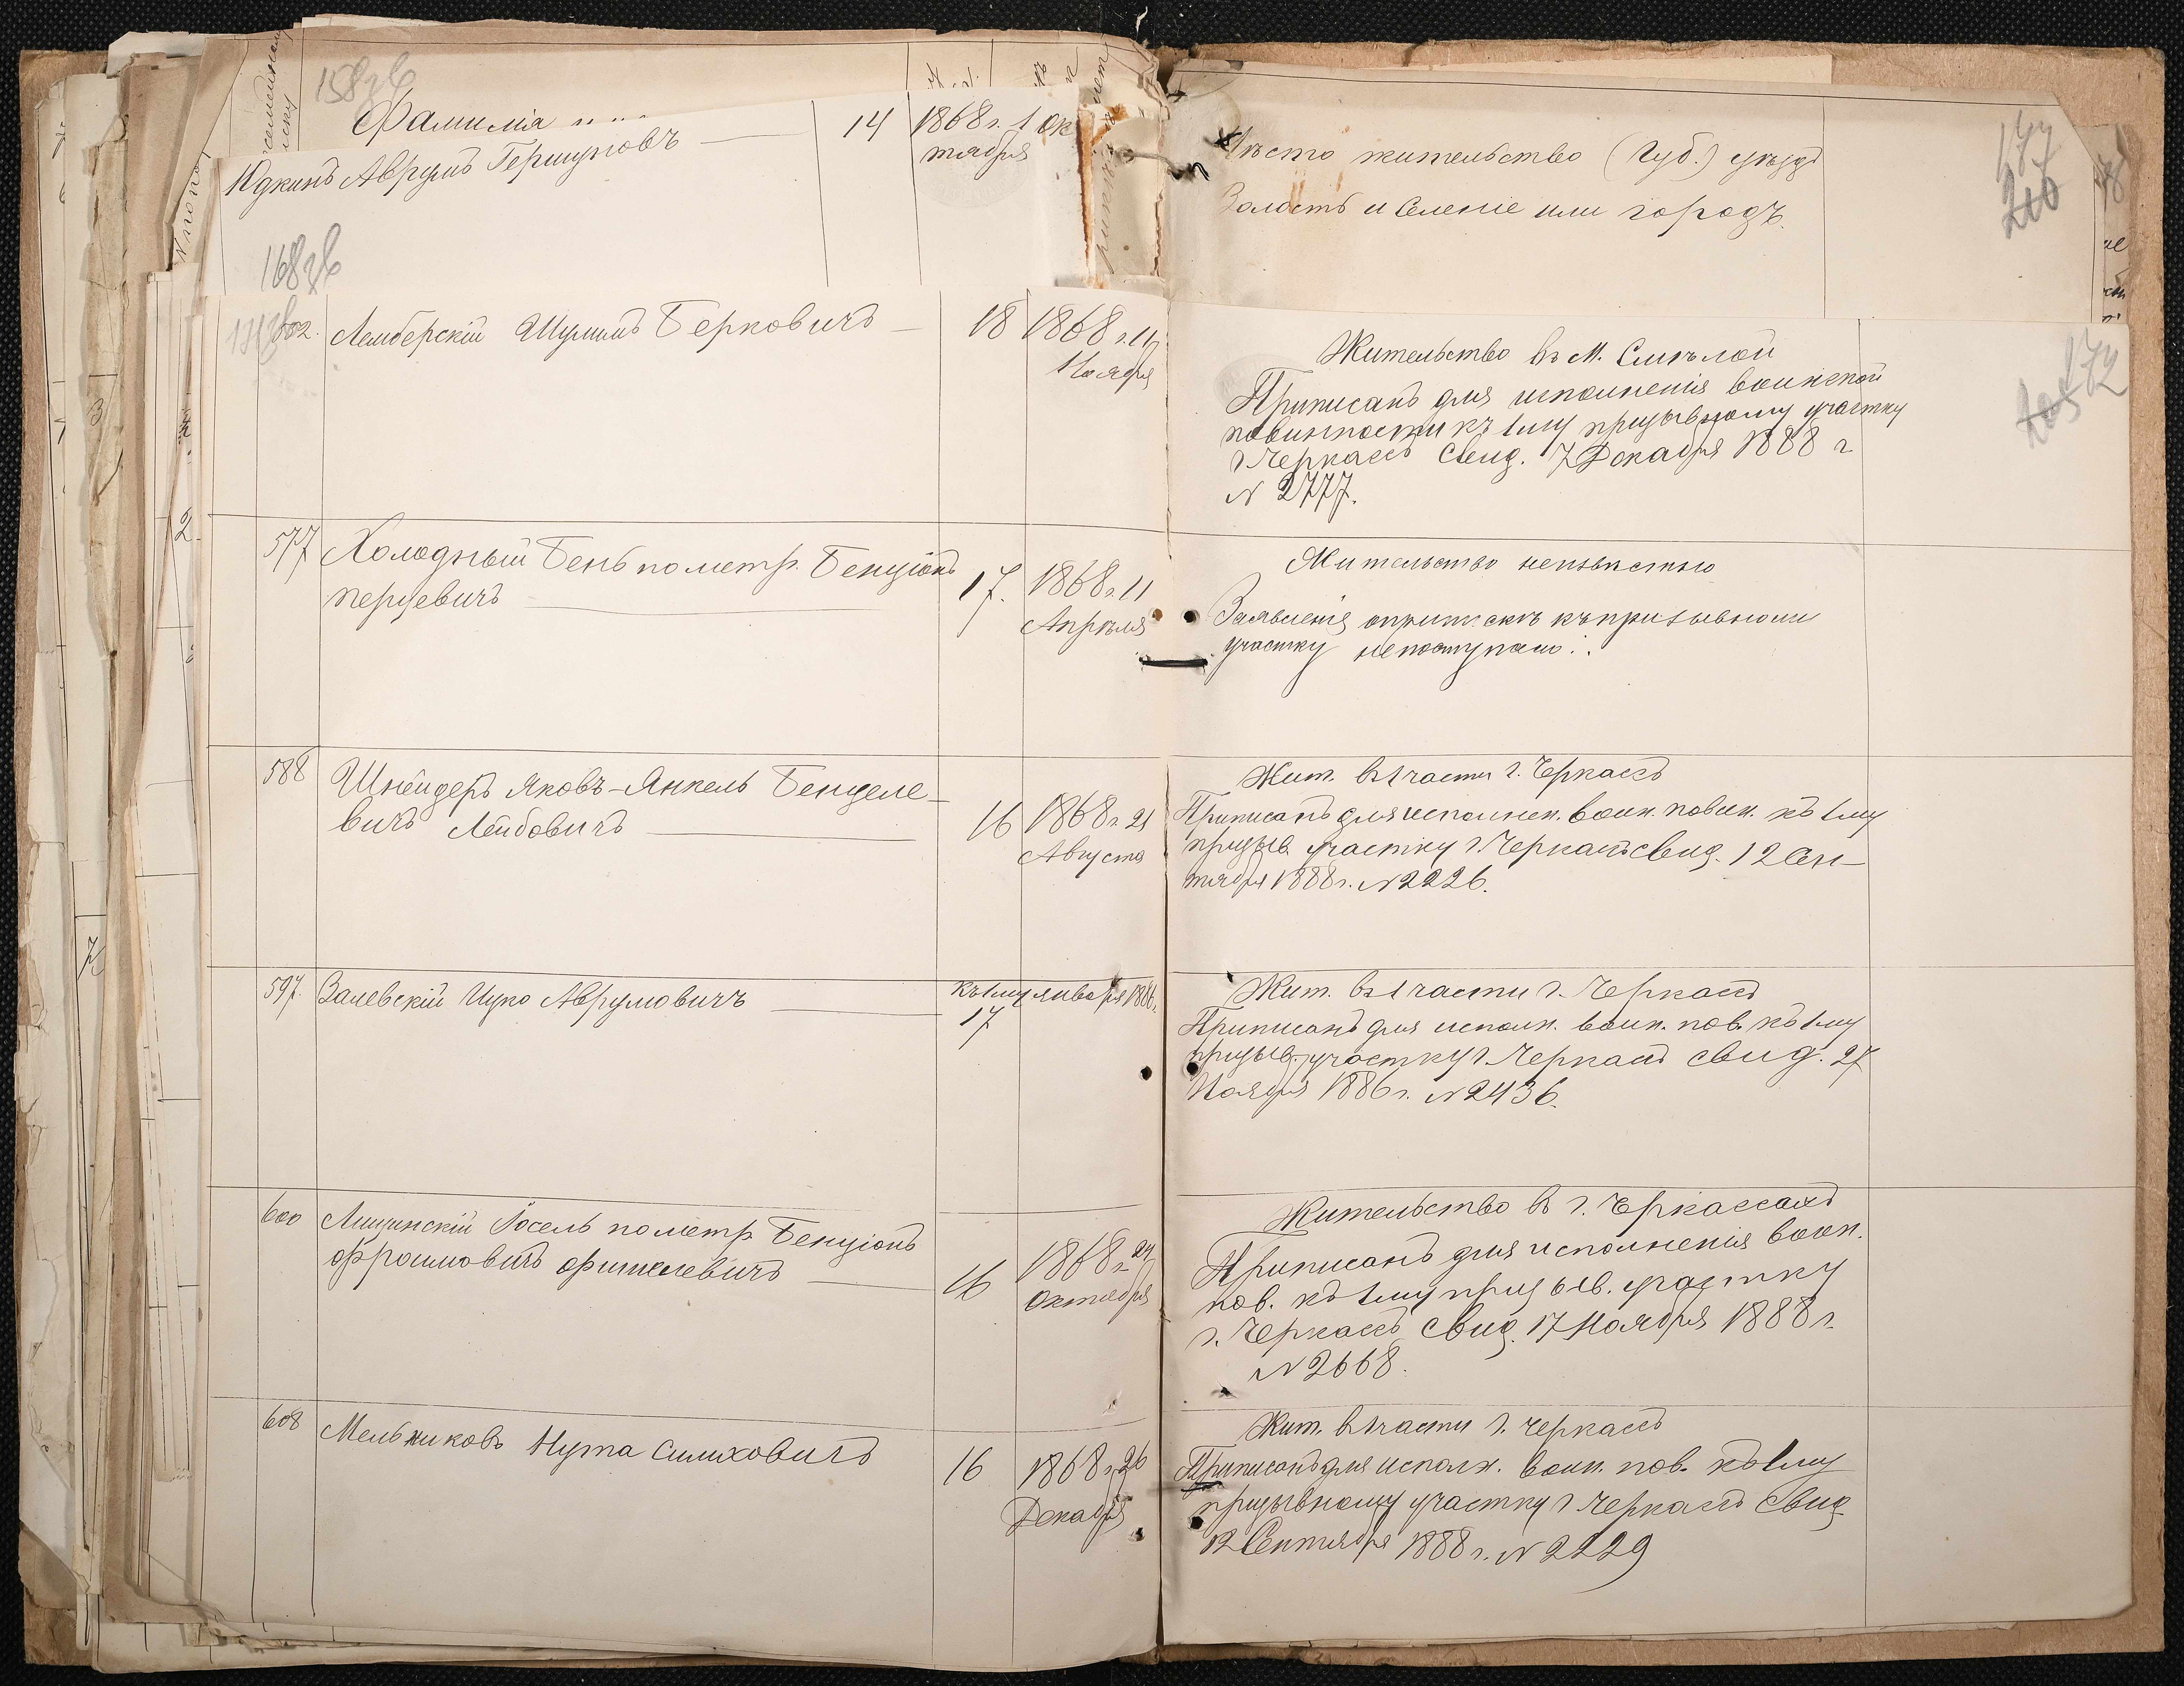 158 зв
Фамилія
Юдкинъ Аврумъ Гершуновъ
14
1868 г. 1 Ок
тября
168 зв
Мѣсто жительство (Губ.) уѣздъ
Волость и Селеніе или городъ.
177
216
502. Лемберскій Шулимъ Берковичъ
18
1868 г. 11
Ноября
Жительство въ М. Смѣлой
Приписанъ для исполненія воинской
повинности къ 1му призывному участку
г. Черкассъ Свид. 7 Декабря 1888 г
N 2777.
172
577 Холодный Бень по метр. Бенціонъ
перцевичъ
17.
1868 г. 11
Апрѣля
Жительство неизвѣстно
Заявленія о припискѣ къ призывному
участку не поступало.
588 Шнейдеръ Яковъ-Янкель Бенцеле-
вичъ Лейбовичъ
16
1868 г. 21
Августа
Жит. въ 1 части г. Черкассъ
Приписанъ для исполнен. воин. повин. къ 1му
призыв. участку г. Черкассъ свид. 12 Сен-
тября 1888 г. N 2226.
597. Залевскій Ицко Аврумовичъ
къ 1му января 1886 г.
17
Жит. въ 1 части г. Черкассъ
Приписанъ для исполн. воин. пов. къ 1му
призыв. участку г. Черкассъ свид. 27
Ноября 1886 г. N 2436.
600 Лищинскій Іосель по метр. Бенціонъ
Фроимовичъ Фишелевичъ
16
1868 г. 24
Октября
Жительство въ г. Черкассахъ
Приписанъ для исполненія воин.
пов. къ 1му призыв. участку
г. Черкассъ Свид. 17 Ноября 1888 г.
N 2668.
608 Мельниковъ Нута Симховичъ
16
1868 г. 26
Декабря
Жит. въ 1 части г. Черкассъ
Приписанъ для исполн. воин. пов. къ 1му
призывному участку г Черкассъ Свид
12 Сентября 1888 г. N 2229